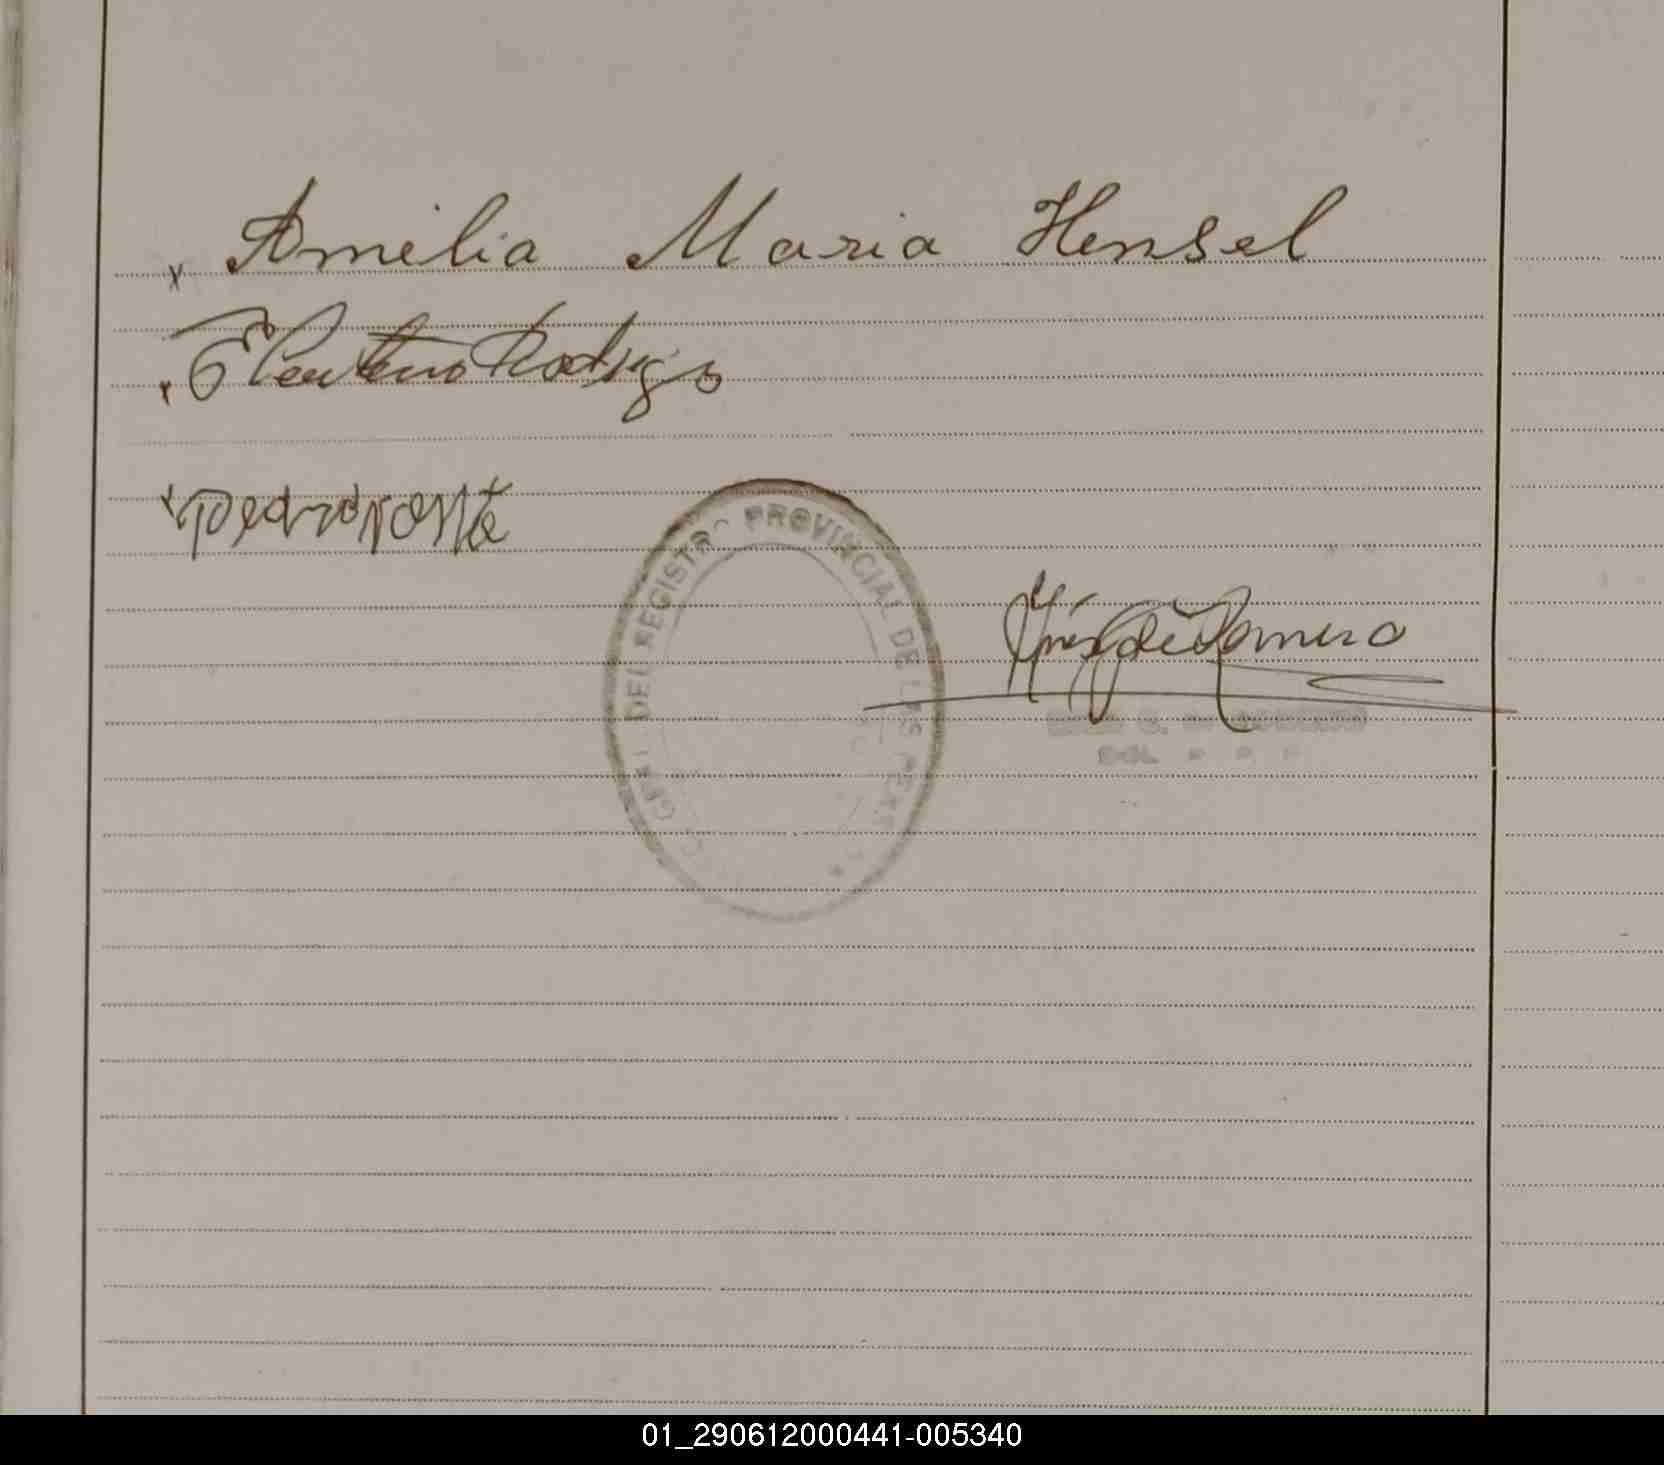 x Amelia Maria Hensel
x Eleuterio Rodrigo
x
DEL REGISTRO PROVINCIAL DE LAS PERS
Inés de Romero
01_290612000441-005340